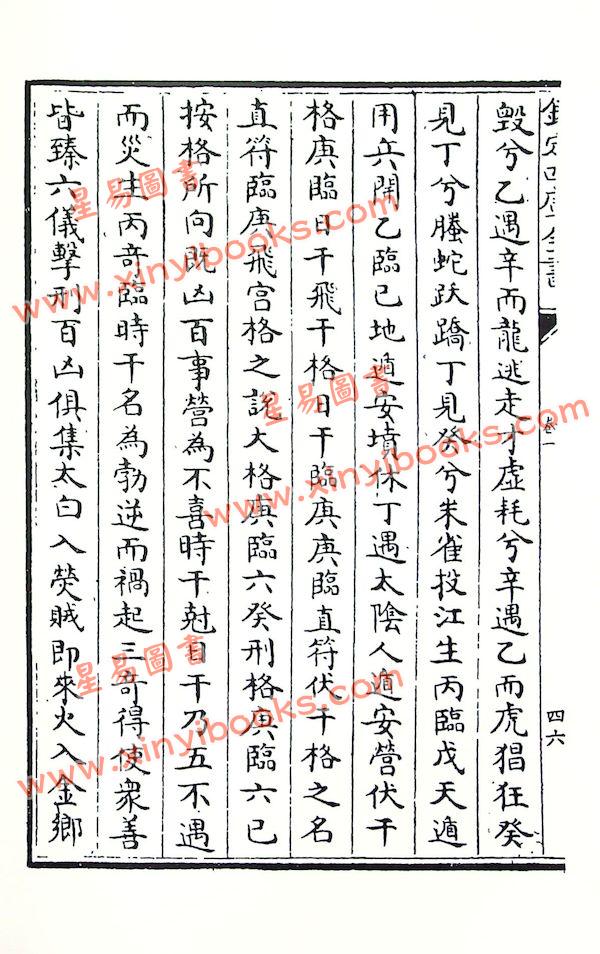 欽定四庫全書
卷一
四六
毀兮乙遇辛而龍逃走才虛耗兮辛遇乙而虎猖狂癸
見丁兮螣蛇跃蹻丁見癸兮朱雀投江生丙臨戊天遁
用兵開乙臨己地遁安墳休丁遇太陰人遁安營伏干
格庚臨日干飛干格日干臨庚庚臨直符伏干格之名
直符臨庚飛宫格之說大格庚臨六癸刑格庚臨六己
按格所向既凶百事營為不喜時干尅日干乃五不遇
而災生丙奇臨時干名為勃逆而禍起三奇得使衆善
皆臻六儀擊刑百凶俱集太白入熒賊即來火入金鄉
星易圖書
www.xinyibooks.com
星易圖書
www.xinyibooks.com
星易圖書
www.xinyibooks.com